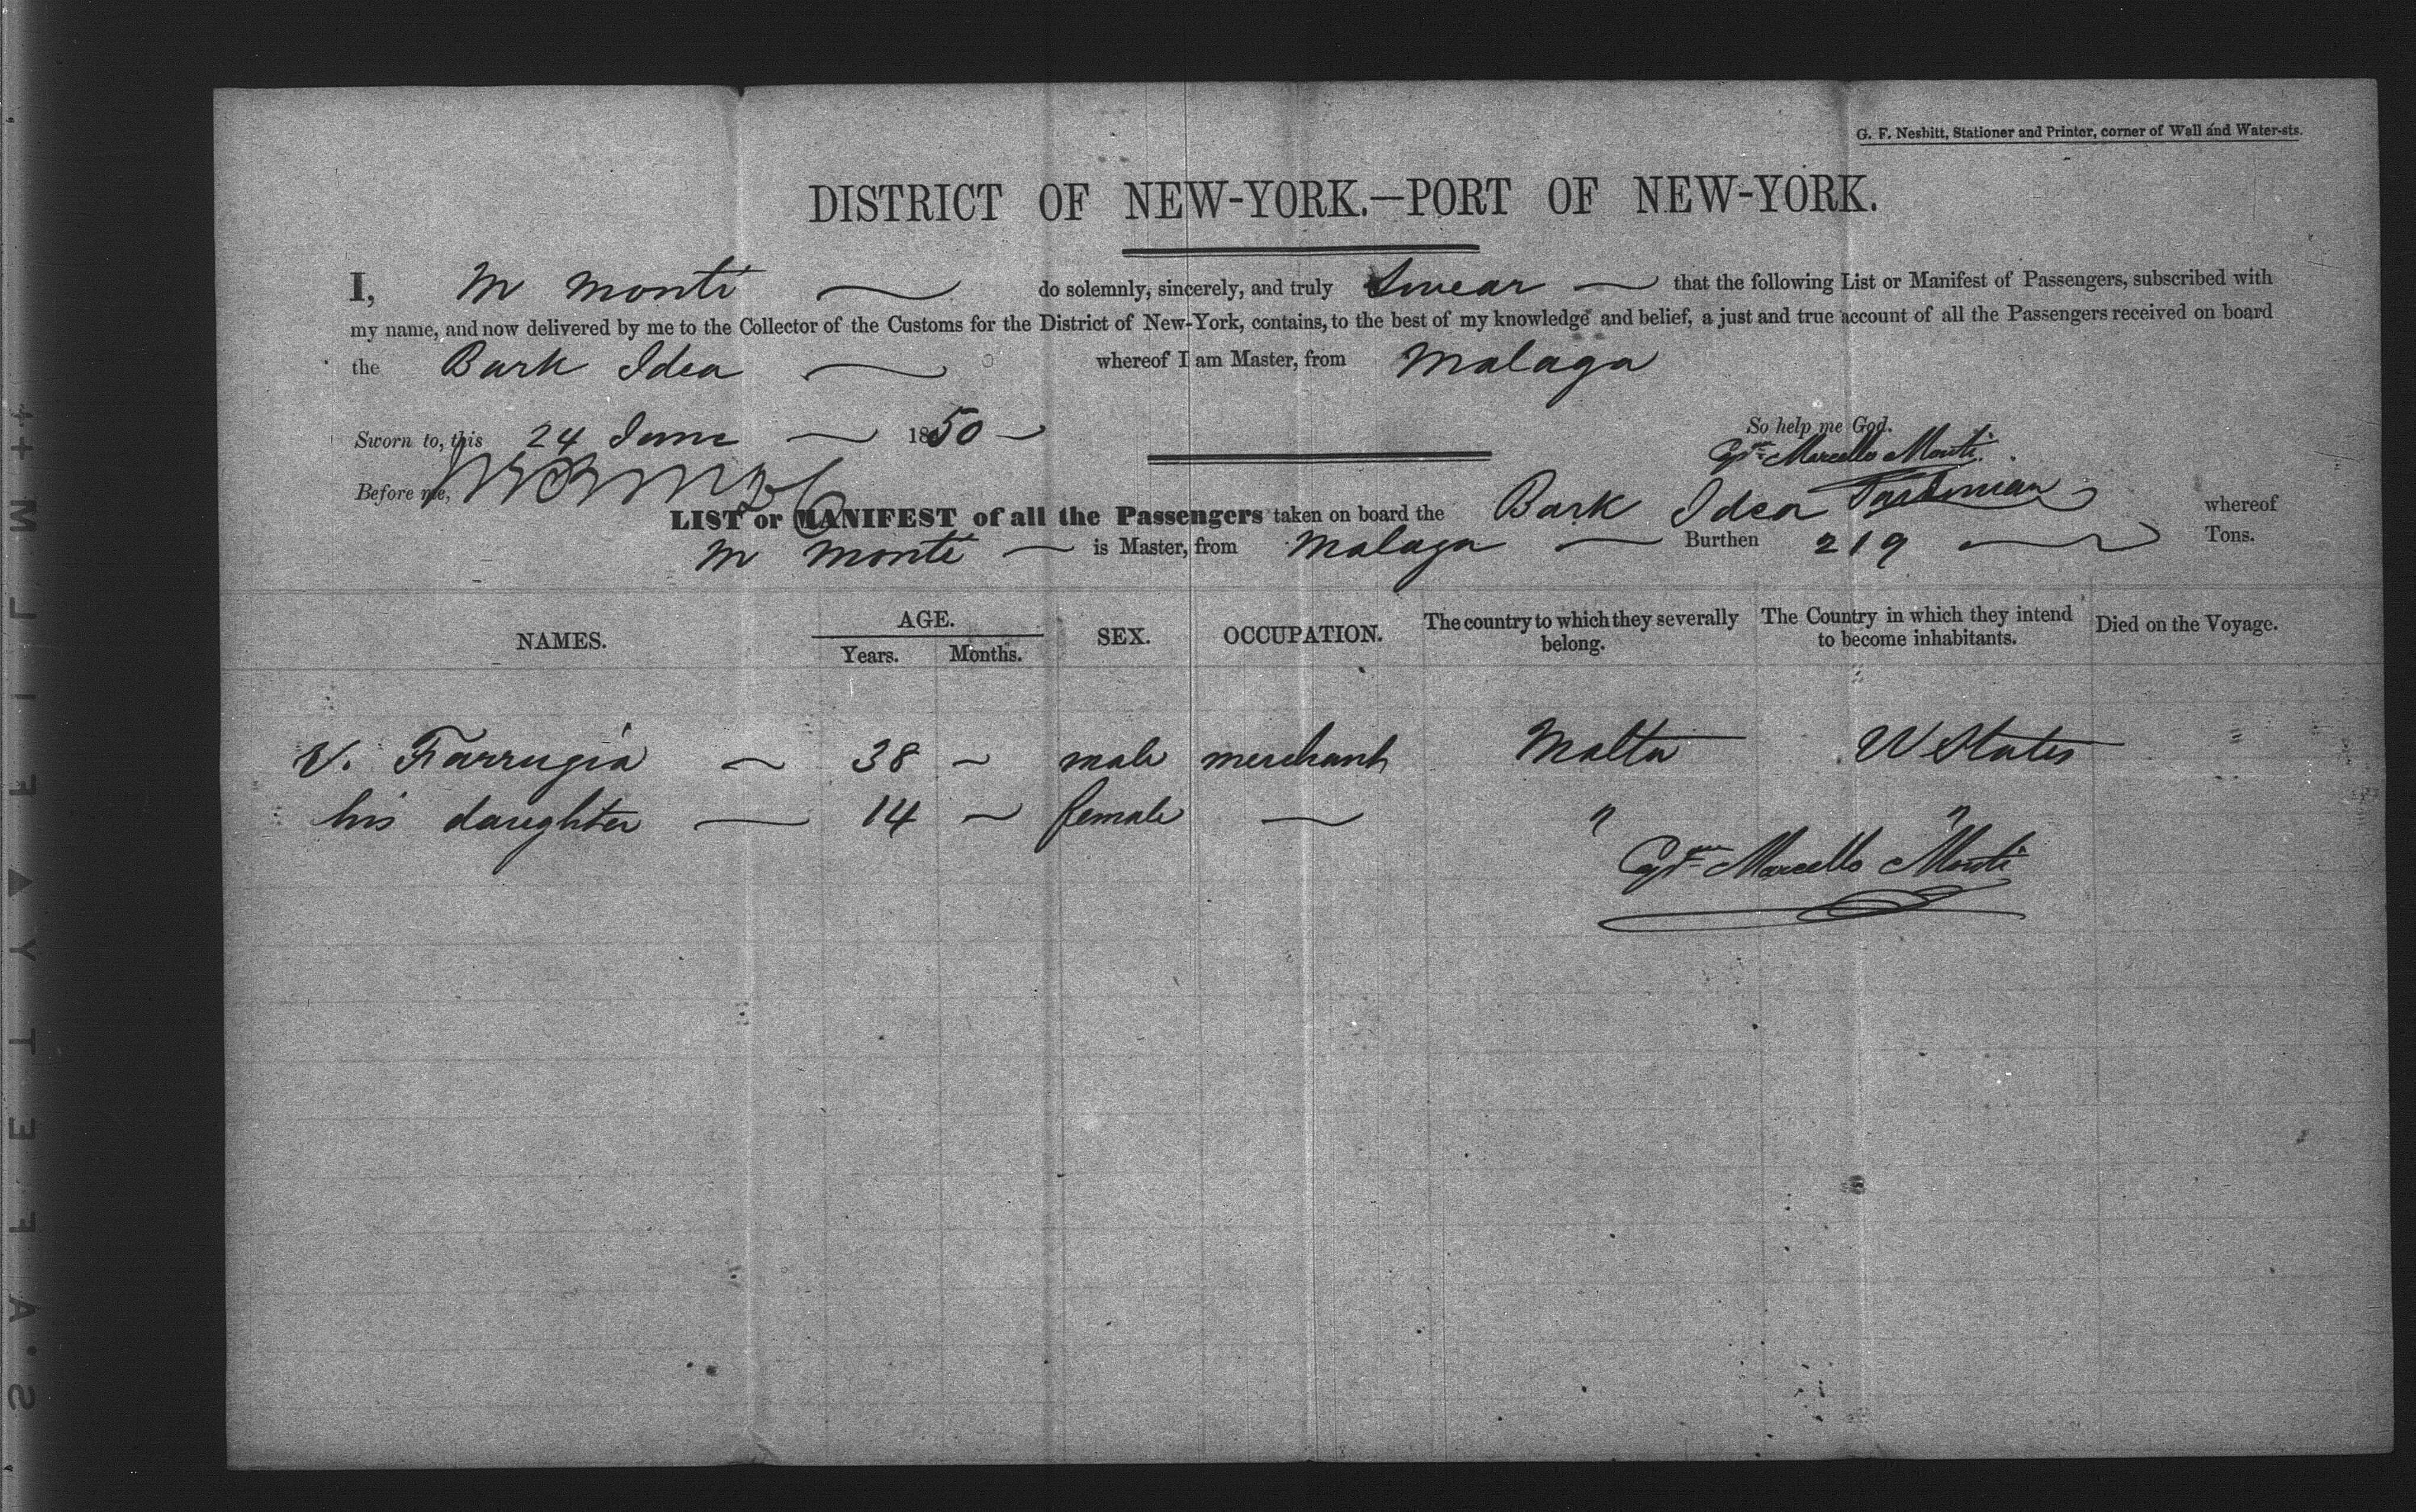 G. F. Nesbitt, Stationer and Printer, corner of Wall and Water-sts.
DISTRICT OF NEW-YORK.—PORT OF NEW-YORK.
I, M Monti do solemnly, sincerely, and truly Swear that the following List or Manifest of Passengers, subscribed with
my name, and now delivered by me to the Collector of the Customs for the District of New-York, contains, to the best of my knowledge and belief, a just and true account of all the Passengers received on board
the Bark Idea whereof I am Master, from Malaga
So help me God.
Sworn to, this 24 June 1850
Capne Marcello Monti
Before me,
LIST or MANIFEST of all the Passengers taken on board the Bark Idea whereof
M Monti is Master, from Malaga Burthen 219 Tons.
NAMES. AGE. SEX. OCCUPATION. The country to which they severally belong. The Country in which they intend to become inhabitants. Died on the Voyage.
Years. Months.
V. Farrugia 38 male merchant Malta U States "
his daughter 14 female " "
Capne Marcello Monti
S.A.FETY▲FILM ++